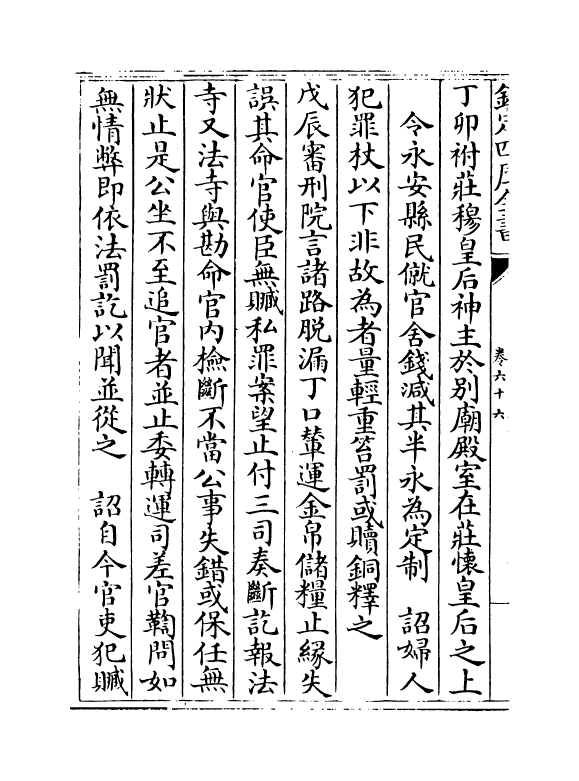 欽定四庫全書
卷六十六
丁卯祔莊穆皇后神主於别廟殿室在莊懷皇后之上
令永安縣民僦官舍錢減其半永為定制　詔婦人
犯罪杖以下非故為者量輕重笞罰或贖銅釋之
戊辰審刑院言諸路脱漏丁口輦運金帛儲糧止緣失
誤其命官使臣無贓私罪案望止付三司奏斷訖報法
寺又法寺與勘命官内檢斷不當公事失錯或保任無
狀止是公坐不至追官者並止委轉運司差官鞫問如
無情弊即依法罰訖以聞並從之　詔自今官吏犯贓